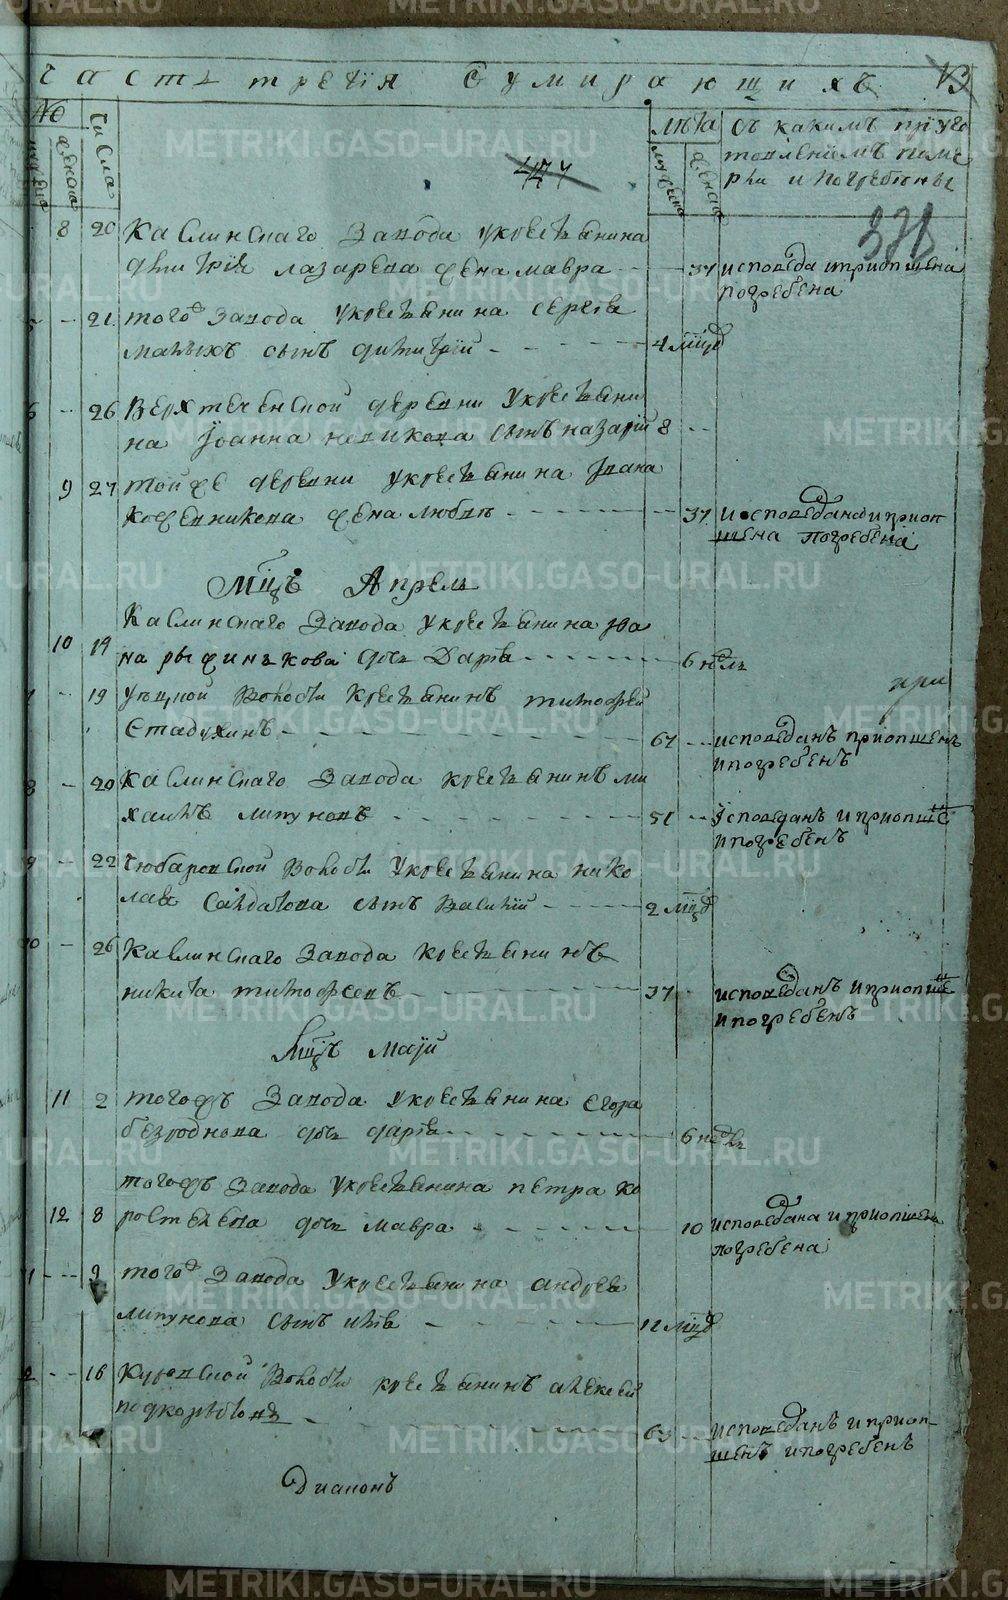 Часть третїя О умирающихъ
№ Числа Лѣта Съ какимъ приуго
мужеска женска мужеска женска товленїемъ поме
рли и погребены
447
378
8 20 Каслинскаго Завода укрестьянина
дмитрїя лазарева жена мавра 37 исповѣдана иприопщена
погребена
5 21 того Завода укрестьянина сергѣя
малыхъ сынъ димитрїй 4 мцъ
6 26 Верхтеченской деревни укрестьяни
на Їоанна сынъ назарїй 8
9 27 тойже деревни укрестьянина Їѡана
Кожевникова жена любовь 37 Исповеданаиприоп
щена погребена
Мцъ Апрель
Каслинскаго Завода укрестьянина ива
10 19 на дочь Дарїя 6 недль
7 19 Волости Крестьянинъ тимофей
Стадухинъ 67 исповѣданъ приопщенъ
ипогребенъ
8 20 Каслинскаго Завода крестьянинъ ми
хаилъ липуновъ 51 Їсповеданъ и приопще
ипогребенъ
9 22 Волости укрестьянина нико
лая Салдатова сынъ Василїй 2 мцъ
10 26 Каслинскаго Завода крестьянинъ
никита тимофеевъ 37 исповѣданъ иприопще
ипогребенъ
Мцъ Маїй
11 2 тогожъ Завода укрестьянина егора
безроднова дочь дарїя 6 недль
тогожъ Завода укрестьянина петра ко
12 8 ростелева дочь мавра 10 исповедана и приопщена
погребена
11 9 того Завода укрестьянина андрея
липунова сынъ илїя 12 мцъ
12 16 Волости крестьянинъ алексей
подкорытовъ исповѣданъ и приоп
щенъ ипогребенъ
Диаконъ
METRIKI.GASO-URAL.RU